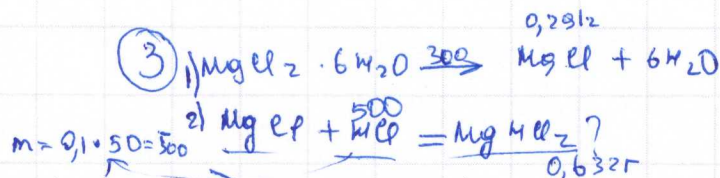 0,291г
③ 1) MgCl₂ · 6H₂O 300→ MgCl + 6H₂O
500
2) MgCl + HCl = MgHCl₂ ?
m = 0,1 · 50 = 500
0,632г